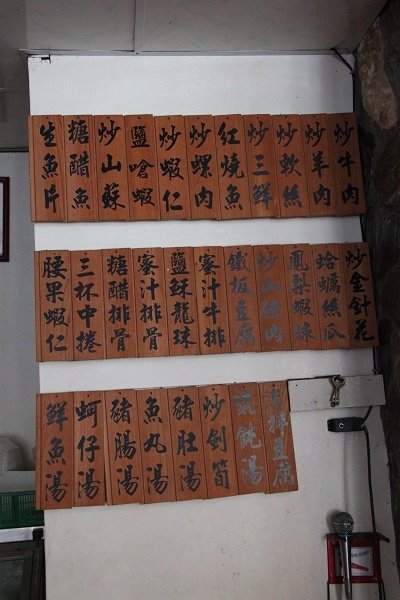 炒牛肉
炒羊肉
炒軟絲
炒三鮮
紅燒魚
炒螺肉
炒蝦仁
鹽嗆蝦
炒山蘇
糖醋魚
生魚片
炒金針花
蛤蠣絲瓜
鳳梨蝦球
炒山豬肉
鐵板豆腐
蜜汁牛排
鹽酥龍珠
蜜汁排骨
糖醋排骨
三杯中捲
腰果蝦仁
豆腐
湯
炒劍筍
豬肚湯
魚丸湯
豬腸湯
蚵仔湯
鮮魚湯